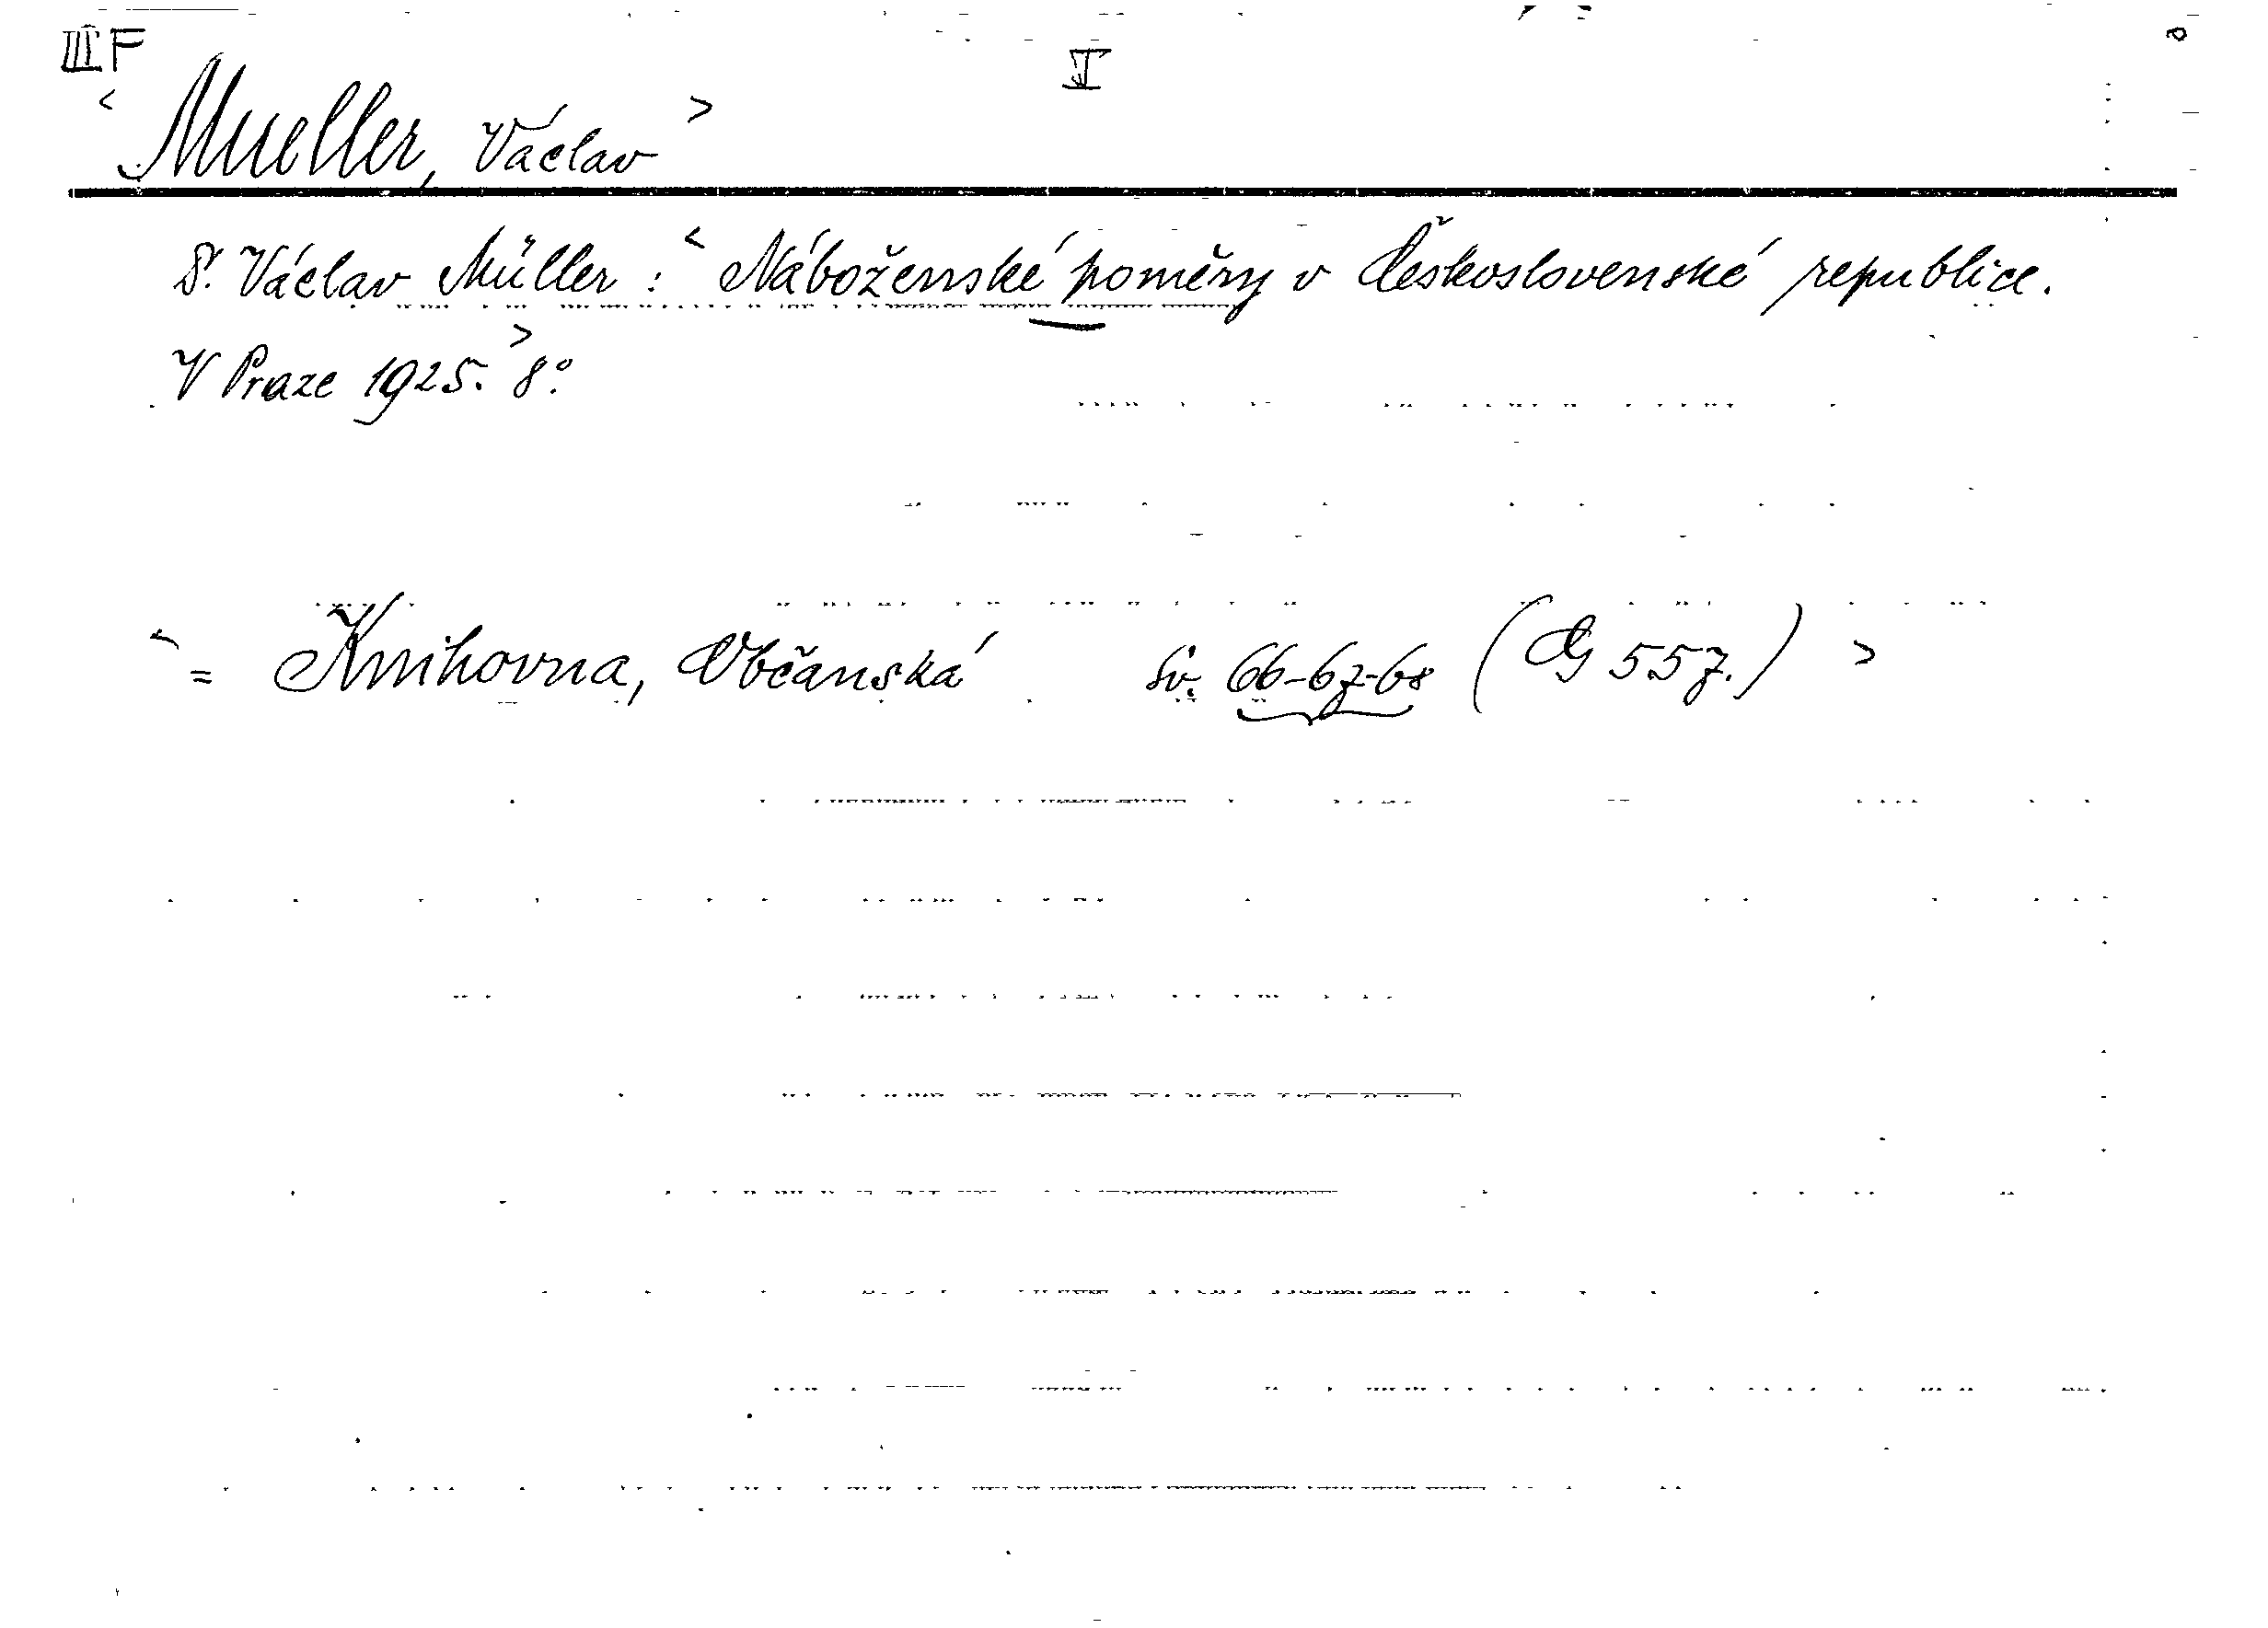 III F I
< Mueller, Václav >
Dr. Václav Müller: < Náboženské poměry v Československé republice.
V Praze 1925. > 8°.
< = Knihovna, Občanská Sv. 66-67-68 (G 557.) >